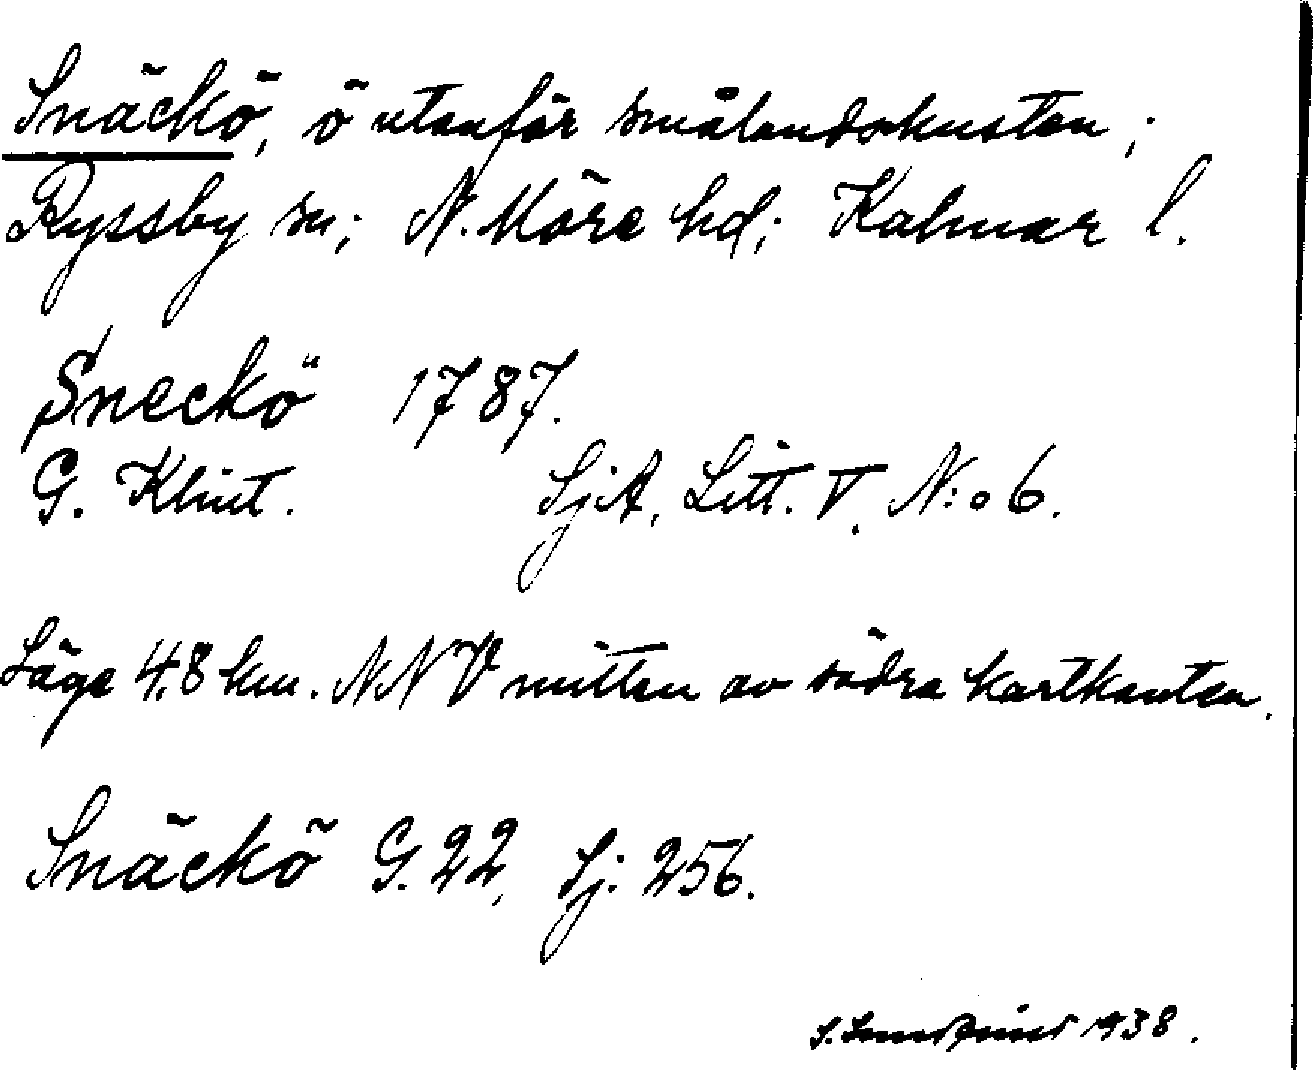 Snäckö, ö utanför smålandskusten;
Ryssby sn; N. Möre hd; Kalmar l.
Sneckö 1787.
G. Klint. SjA, Litt. V, N:o 6.
Läge 4,8 km. NNV mitten av södra kartkanten.
Snäckö G. 22, Sj. 256.
1938.